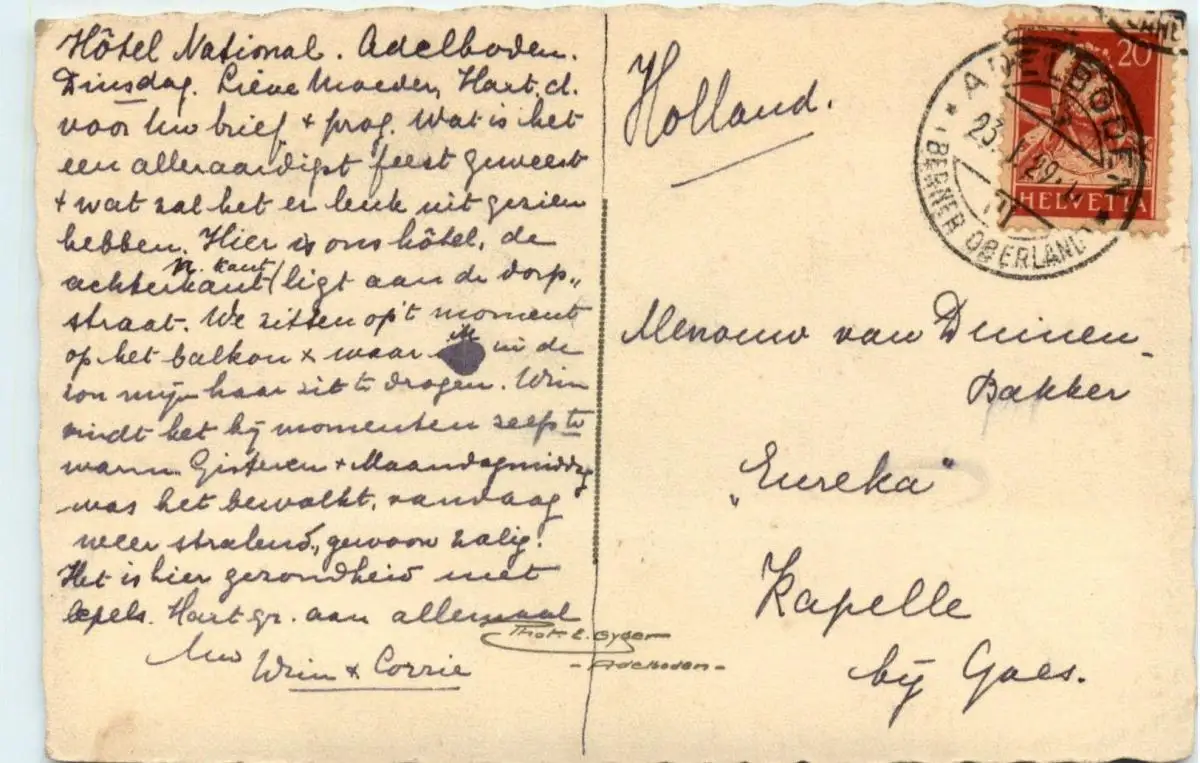 Hôtel National. Adelboden.
Dinsdag. Lieve Moeder, Hart. d.
voor Uw brief + prog. Wat is het
een alleraardigst feest geweest
+ wat zal het er leuk uit gezien
hebben. Hier is ons hôtel, de
n. kant
achterkant ligt aan de dorp„
straat. We zitten op't moment
op het balkon + waar in de
zon mijn haar zit te drogen. Wim
vindt het bij momenten zelfs te
warm. Gisteren + Maandagmiddag
was het bewolkt, vandaag
weer stralend, gewoon zalig.
Het is hier gezondheid met
lepels. Hart. gr. aan allemaal
Uw
Wim + Corrie
Phot. E. Gyger
- Adelboden -
Holland.
Mevrouw van Duinen-
Bakker
„Eureka"
Kapelle
bij Goes.
20
HELVETIA
ADELBODEN
(BERNER OBERLAND)